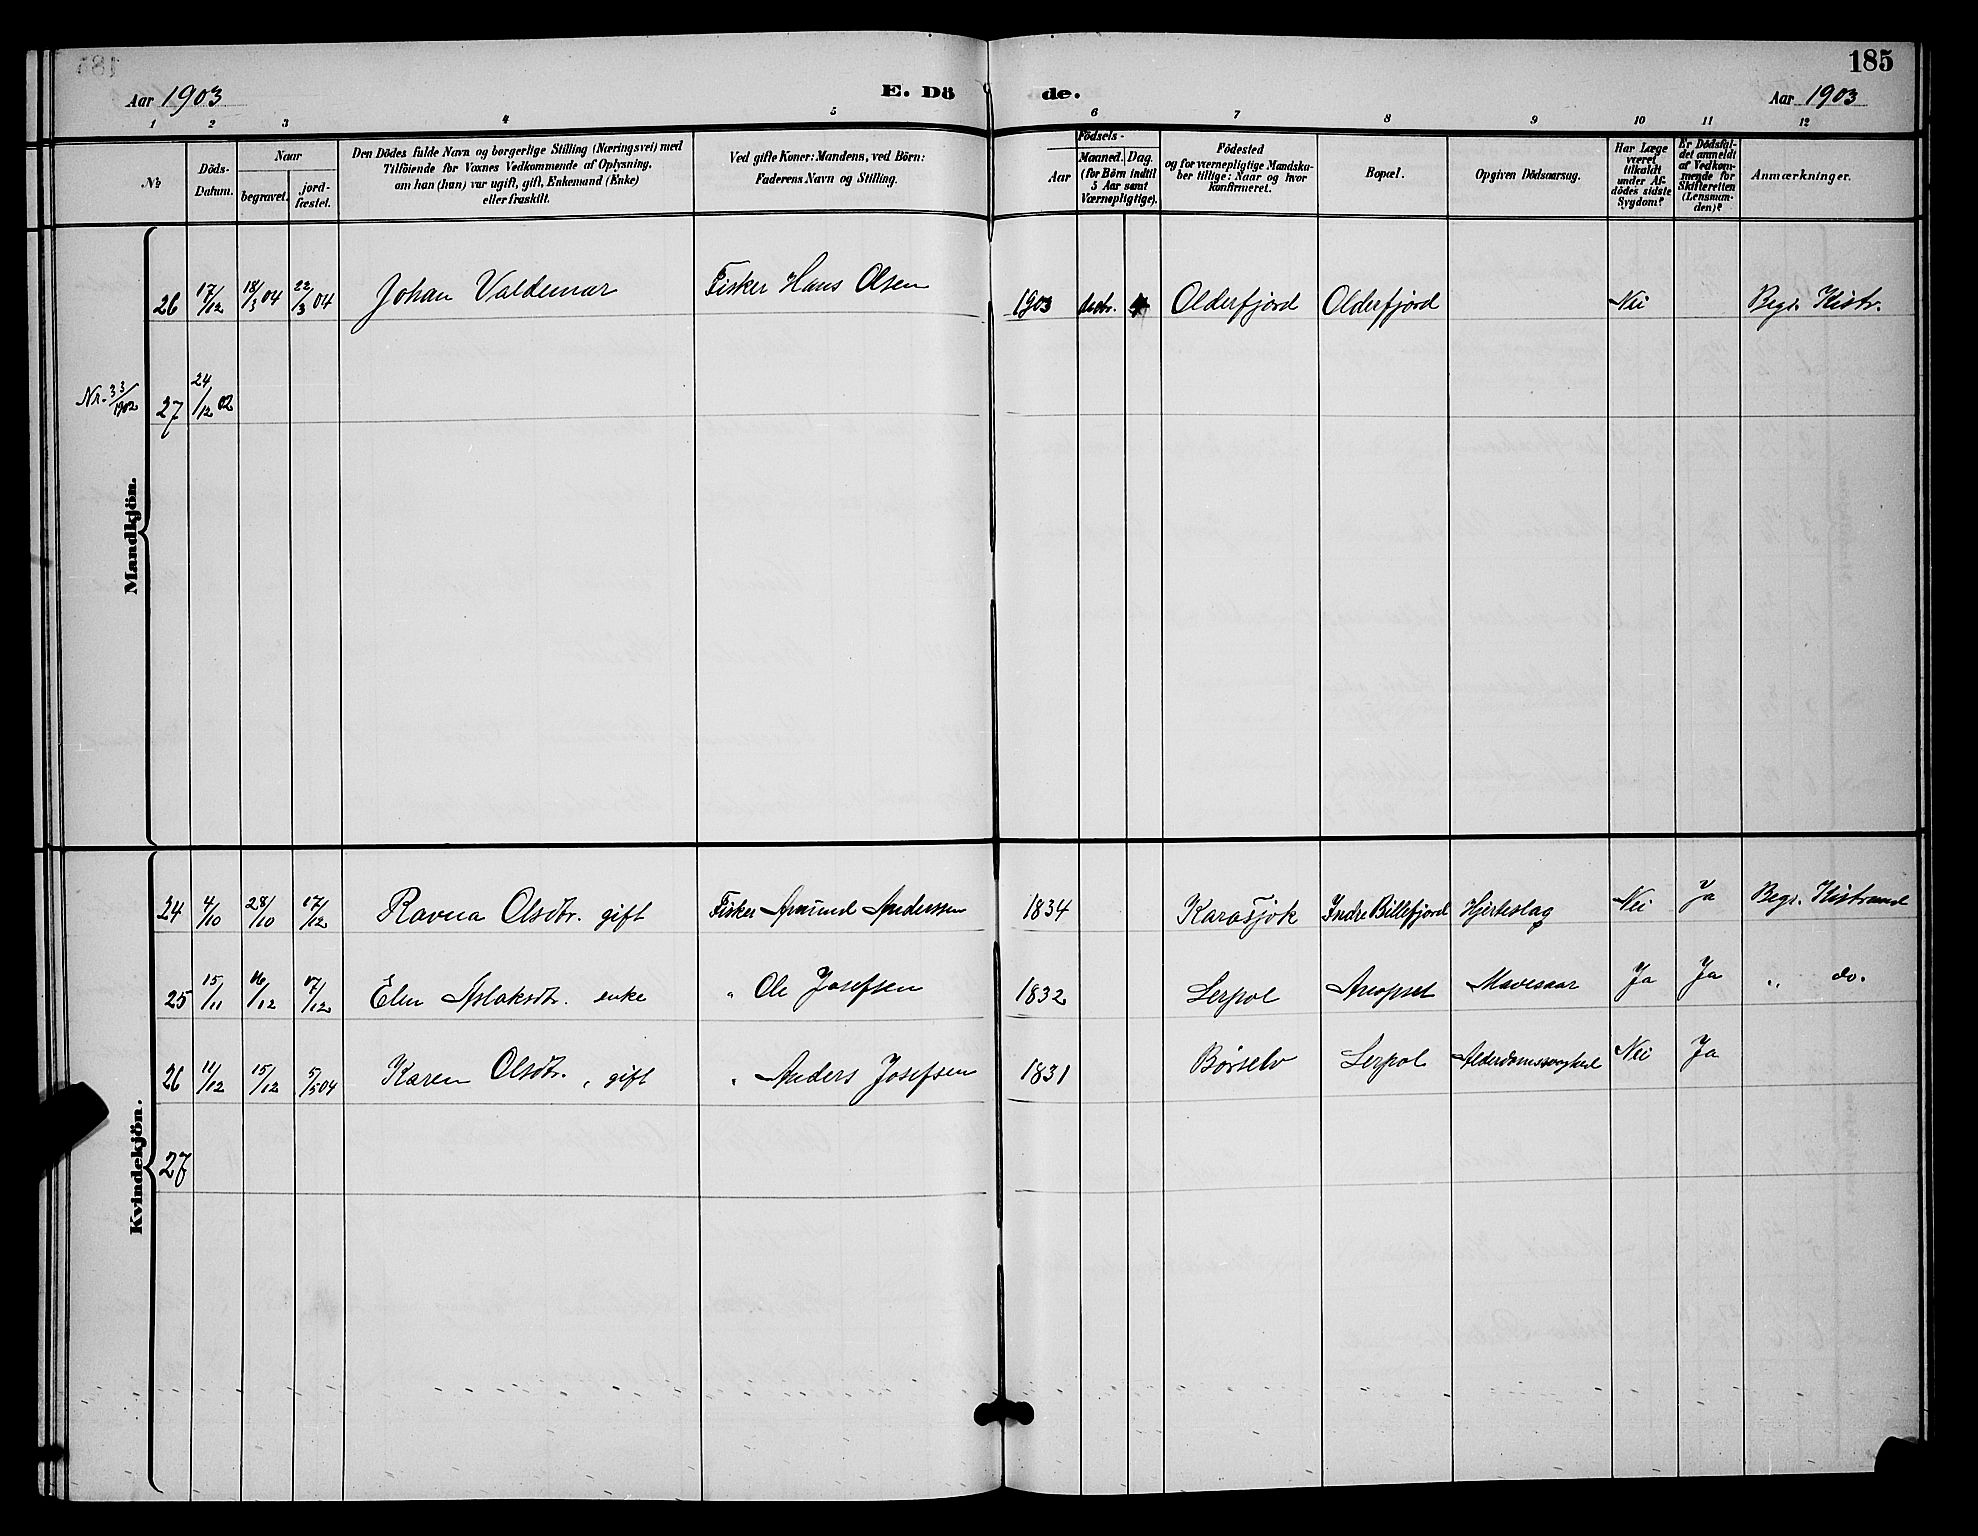 185
Aar 1903
E. Dö de.
Aar 1903
1 2 3 4 5 6 7 8 9 10 11 12
№
Döds-
Datum.
Naar
begravet.
jord-
fæstet.
Den Dödes fulde Navn og borgerlige Stilling (Næringsvei) med
Tilföiende for Voxnes Vedkommende af Oplysning,
om han (hun) var ugift, gift, Enkemand (Enke)
eller fraskilt.
Ved gifte Koner: Mandens, ved Börn:
Faderens Navn og Stilling.
Födsels-
Aar
Maaned. Dag.
(for Börn indtil
5 Aar samt
Værnepligtige).
Födested
og for værnepligtige Mandska-
ber tillige: Naar og hvor
konfirmeret.
Bopæl.
Opgiven Dödsaarsag.
Har Læge
været
tilkaldt
under Af-
dödes sidste
Sygdom?
Er Dödsfal-
det anmeldt
af Vedkom-
mende for
Skifteretten
(Lensman-
den)?
Anmærkninger.
Mandkjön.
26 17/12 18/3 04 22/3 04 Johan Valdemar Fisker Hans Olsen 1903 Olderfjord Olderfjord Nei Begr. Kistr.
Nr. 33/1902 27 24/12 02
Kvindekjön.
24 4/10 28/10 17/12 Ravna Olsdtr. gift Fisker Amund Anderssen 1834 Karasjok Indre Billefjord Hjerteslag Nei Ja Begr. Kistrand
25 15/11 16/12 17/12 Elen Aslaksdtr. enke " Ole Josefsen 1832 Lerpol Anopset Mavesaar Ja Ja " do.
26 11/12 15/12 5/5 04 Karen Olsdtr., gift " Anders Josefsen 1831 Børselv Lerpol Alderdomssvaghed Nei Ja
27